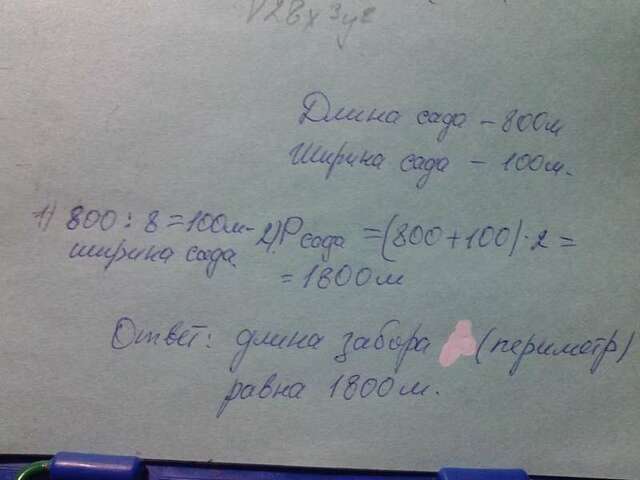 Длина сада – 800м
Ширина сада – 100м.
1) 800 : 8 = 100м - 2) P сада = (800 + 100) · 2 =
ширина сада.
= 1800м
Ответ: длина забора (периметр)
равна 1800м.